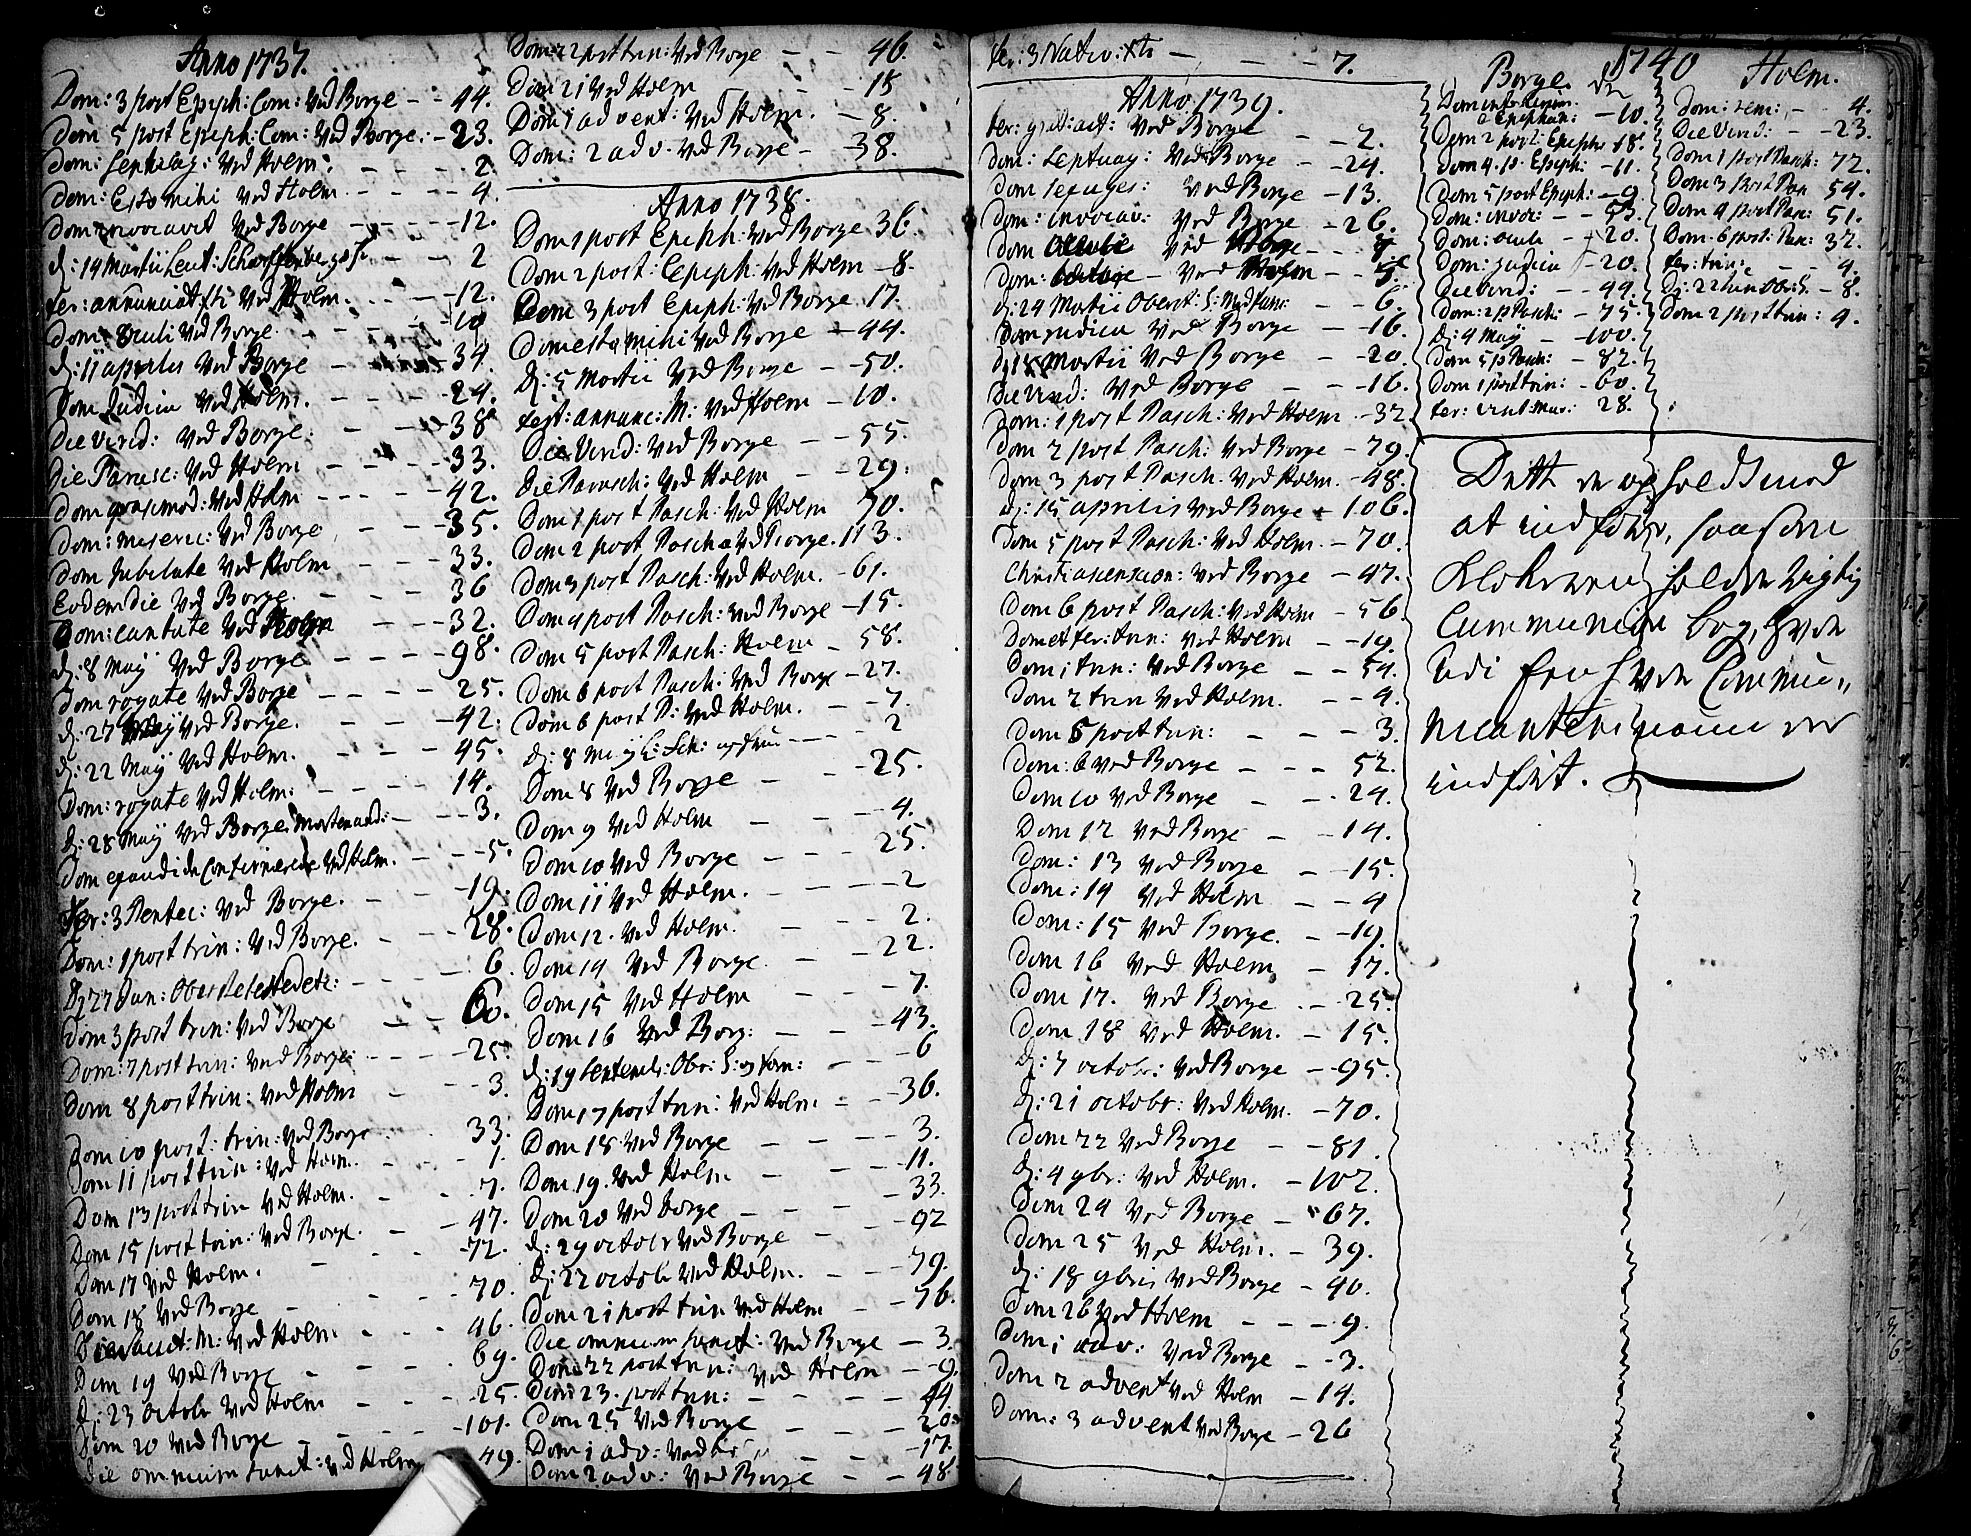 Anno 1737.
Dom: 3 post Epiph: Com: ved Borge - - 44.
Dom 5 post Epiph: Com: ved Borge: - 23.
Dom: Septuag: ved Holm: - - - 2
Dom: Esto mihi ved Holm - - - 4.
Dom invocavit ved Borge - - - 12.
d: 19 Martii Leut: - - 2
fer: annunciat: ved Holm. - - 12.
Dom Oculi ved Borge - - - 10
d: 11 aprilis ved Borge - - 34.
Dom Judica ved Holm. - - - 24.
Die Virid: ved Borge. - - - 38
Die Parasc: ved Holm - - - 33.
Dom quasimod: ved Holm - - - 42.
Dom: miseric: ved Borge - - 35.
Dom Jubilate ved Holm - - - 33.
Eodem die ved Borge. - - - 36
Dom: cantate ved Holm - - - 32.
d: 8 Maij ved Borge - - - 98.
Dom rogate ved Borge - - - 25.
d: 27 Maij ved Borge. - - - 42.
d: 22 Maij ved Holm. - - - 45.
Dom: rogate ved Holm: - - - 14.
d: 28 Maij ved Borge. - - 3.
Dom exaudi de Confirmerede ved Holm. - - 5.
Fer: 3 Pentec: ved Borge. - - 19.
Dom: 1 post trin: ved Borge. - - 28.
d: 27 Jun: - - 6.
Dom 3 post trin: ved Borge - - 60.
Dom: 7 post trin: ved Borge - - - 25.
Dom 8 post trin: ved Holm - - - 3.
Dom 10 post: trin: ved Borge - - 33.
Dom 11 post trin: ved Holm. - - 1.
Dom 13 post trin ved Holm. - - 7.
Dom 15 post trin: ved Borge. - - 47.
Dom 17 ved Holm. - - 72.
Dom 18 ved Borge - - 70.
ved Holm - - - 46.
Dom 19 ved Borge - - - 69.
d: 23 octobr ved Holm - - - 25.
Dom 20 ved Borge - - - 101.
Die omnium sanct: ved Holm 49.
Dom: 22 post trin: ved Borge - - 46.
Dom 21 ved Holm - - 15
Dom 1 advent: ved Holm. - 8.
Dom: 2 adv. ved Borge - 38.
Anno 1738.
Dom 1 post Epiph: ved Borge 36.
Dom 2 post: Epiph: ved Holm - 8.
Dom 3 post Epiph: ved Borge. 17.
Dom esto mihi ved Borge - 44.
d: 5 Martii ved Borge - - 50.
fest: annunc: M: ved Holm - 10.
Die Virid: ved Borge - - 55.
Die Parasch: ved Holm - - 29.
Dom 1 post Pasch: ved Holm 70.
Dom 2 post Pascha ved Borge. 113.
Dom 3 post Pasch: ved Holm. - 61.
Dom 4 post Pasch: ved Borge - 15.
Dom 5 post Pasch: Holm - 58.
Dom 6 post Pasch: ved Borge - 27.
Dom 6 post P: ved Holm. - - 7.
d: 8 Maij - - 2
Dom 8 ved Borge - - - 25.
Dom 9 ved Holm - - - 4.
Dom 10 ved Borge - - - 25.
Dom 11 ved Holm. - - - 2
Dom 12. ved Holm. - - - 2.
Dom 14 ved Borge - - - 22.
Dom 15 ved Holm - - - 7.
Dom 16 ved Borg: - - 43.
d: 19 Septemb: - - 6
Dom 17 post trin: ved Holm - - 36.
Dom 18 ved Borge - - - 3.
Dom. 19. ved Holm - - - 11.
Dom 20 ved Borge - - - 33.
d: 29 octobr ved Borge - - 92
d: 22 octobr ved Holm. - - 79.
Dom 21 post trin ved Holm - - 76.
Die omnium sanct: ved Borge - 3.
Dom 22 post trin: ved Holm - 9.
Dom: 23. post trin: - - - 44.
Dom 25 ved Borge - - - 20.
Dom 1 adv: - - 17.
Dom 2 adv: ved Borge - - 48
fer: 3 Nativ: Xti - - - 7.
Anno 1739.
ved Borge - 2.
Dom: Septuag: ved Borge - 24.
Dom sexages: ved Borge - 13.
Dom: invocav: ved Borge - 26.
Dom oculi ved
Dom: ved Holm - - 5.
d: 24 Martii - - 6.
Dom judica ved Borge - 16.
d: 18 Martii ved Borge - - 20.
die Virid: ved Borge - - - 16.
Dom: 1 post Pasch: ved Holm. - 32
Dom 2 post Pasch: ved Borge - 79.
Dom 3 post Pasch. ved Holm. - 48.
d: 15 aprilis ved Borge - 106.
Dom 5 post Pasch: ved Holm. - 70.
Christi ascension: ved Borge - 47.
Dom 6 post Pasch: ved Holm - 56
Dom et fer: trin: ved Holm - 19.
Dom 1 trin: ved Borge - - 54.
Dom 2 trin ved Holm. - - 4.
Dom 5 post trin: - - - 3.
Dom: 6 ved Borge - - - 52.
Dom 10 ved Borge - - 24.
Dom 12 ved Borge - - 14.
Dom: 13 ved Borge - - 15.
Dom: 14 ved Holm - - 4
Dom: 15 ved Borge. - - 19.
Dom 16 ved Holm - 17.
Dom 17. ved Borge - - 25.
Dom 18 ved Holm. - 15.
d: 7 octobr: ved Borge - 95.
d: 21 octobr: ved Holm. - 70.
Dom 22 ved Borge - - 81.
d: 4 9br: ved Holm. - 102.
Dom 24 ved Borge - 67.
Dom 25 ved Holm. - 39.
d: 18 9bris ved Borge - 40.
Dom 26 ved Holm - - - 9.
Dom 1 adv: ved Borge - - 3.
Dom 2 advent ved Holm - 14.
Dom: 3 advent ved Borge - 26
1740
Borge.
Epiphan: - 10.
Dom 2 post Epiph: 18.
Dom 4. p. Epiph: - 11.
Dom 5 post Epiph: - 9.
Dom: invoc: - - 53.
Dom: oculi - - 20.
Dom: judica - 20.
Die Virid: - - 49.
Dom: 2 p Pasch: - 75.
d: 4 Maij - 100.
Dom 5 p Pasch: - 82.
Dom 1 post trin: - 60.
fer: visit: Mar: 28.
Holm.
Dom: rem: - - 4.
Die Virid: - - 23.
Dom 1 post Pasch: 72.
Dom 3 post Pas 54.
Dom 4 post Pas: 51.
Dom. 6 post: Pas: 32.
fer: trin: - - 4.
d: 22 Jun - 8.
Dom 2 post trin: 4.
Dette er opholdt med
at indføre, saasom
Klokkeren holder rigtig
Communion bog, hvor
udi hver Commu„
nicanters naun er
indført.